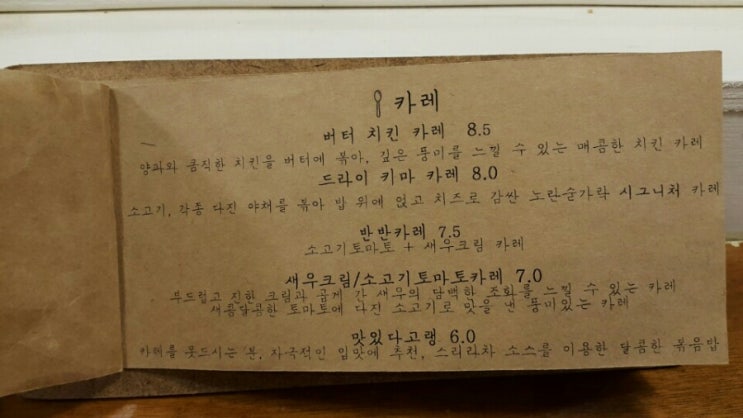 카레
버터 치킨 카레 8.5
양파와 큼직한 치킨을 버터에 볶아, 깊은 풍미를 느낄 수 있는 매콤한 치킨 카레
드라이 키마 카레 8.0
소고기, 각종 다진 야채를 볶아 밥 위에 얹고 치즈로 감싼 노란숟가락 시그니처 카레
반반카레 7.5
소고기토마토 + 새우크림 카레
새우크림/소고기토마토카레 7.0
부드럽고 진한 크림과 곱게 간 새우의 담백한 조화를 느낄 수 있는 카레
새콤달콤한 토마토에 다진 소고기로 맛을 낸 풍미있는 카레
맛있다고랭 6.0
카레를 못드시는 분, 자극적인 입맛에 추천, 스리라차 소스를 이용한 달콤한 볶음밥